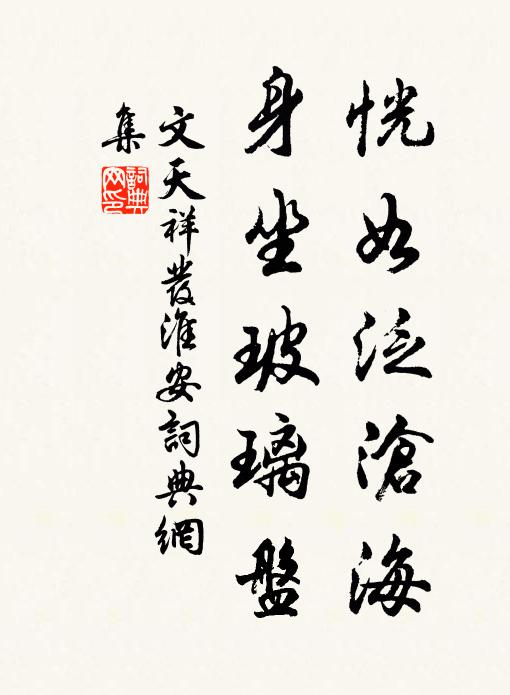 恍如泛滄海
身坐玻璃盤
文天祥發淮安詞典網
集
詞典
网印